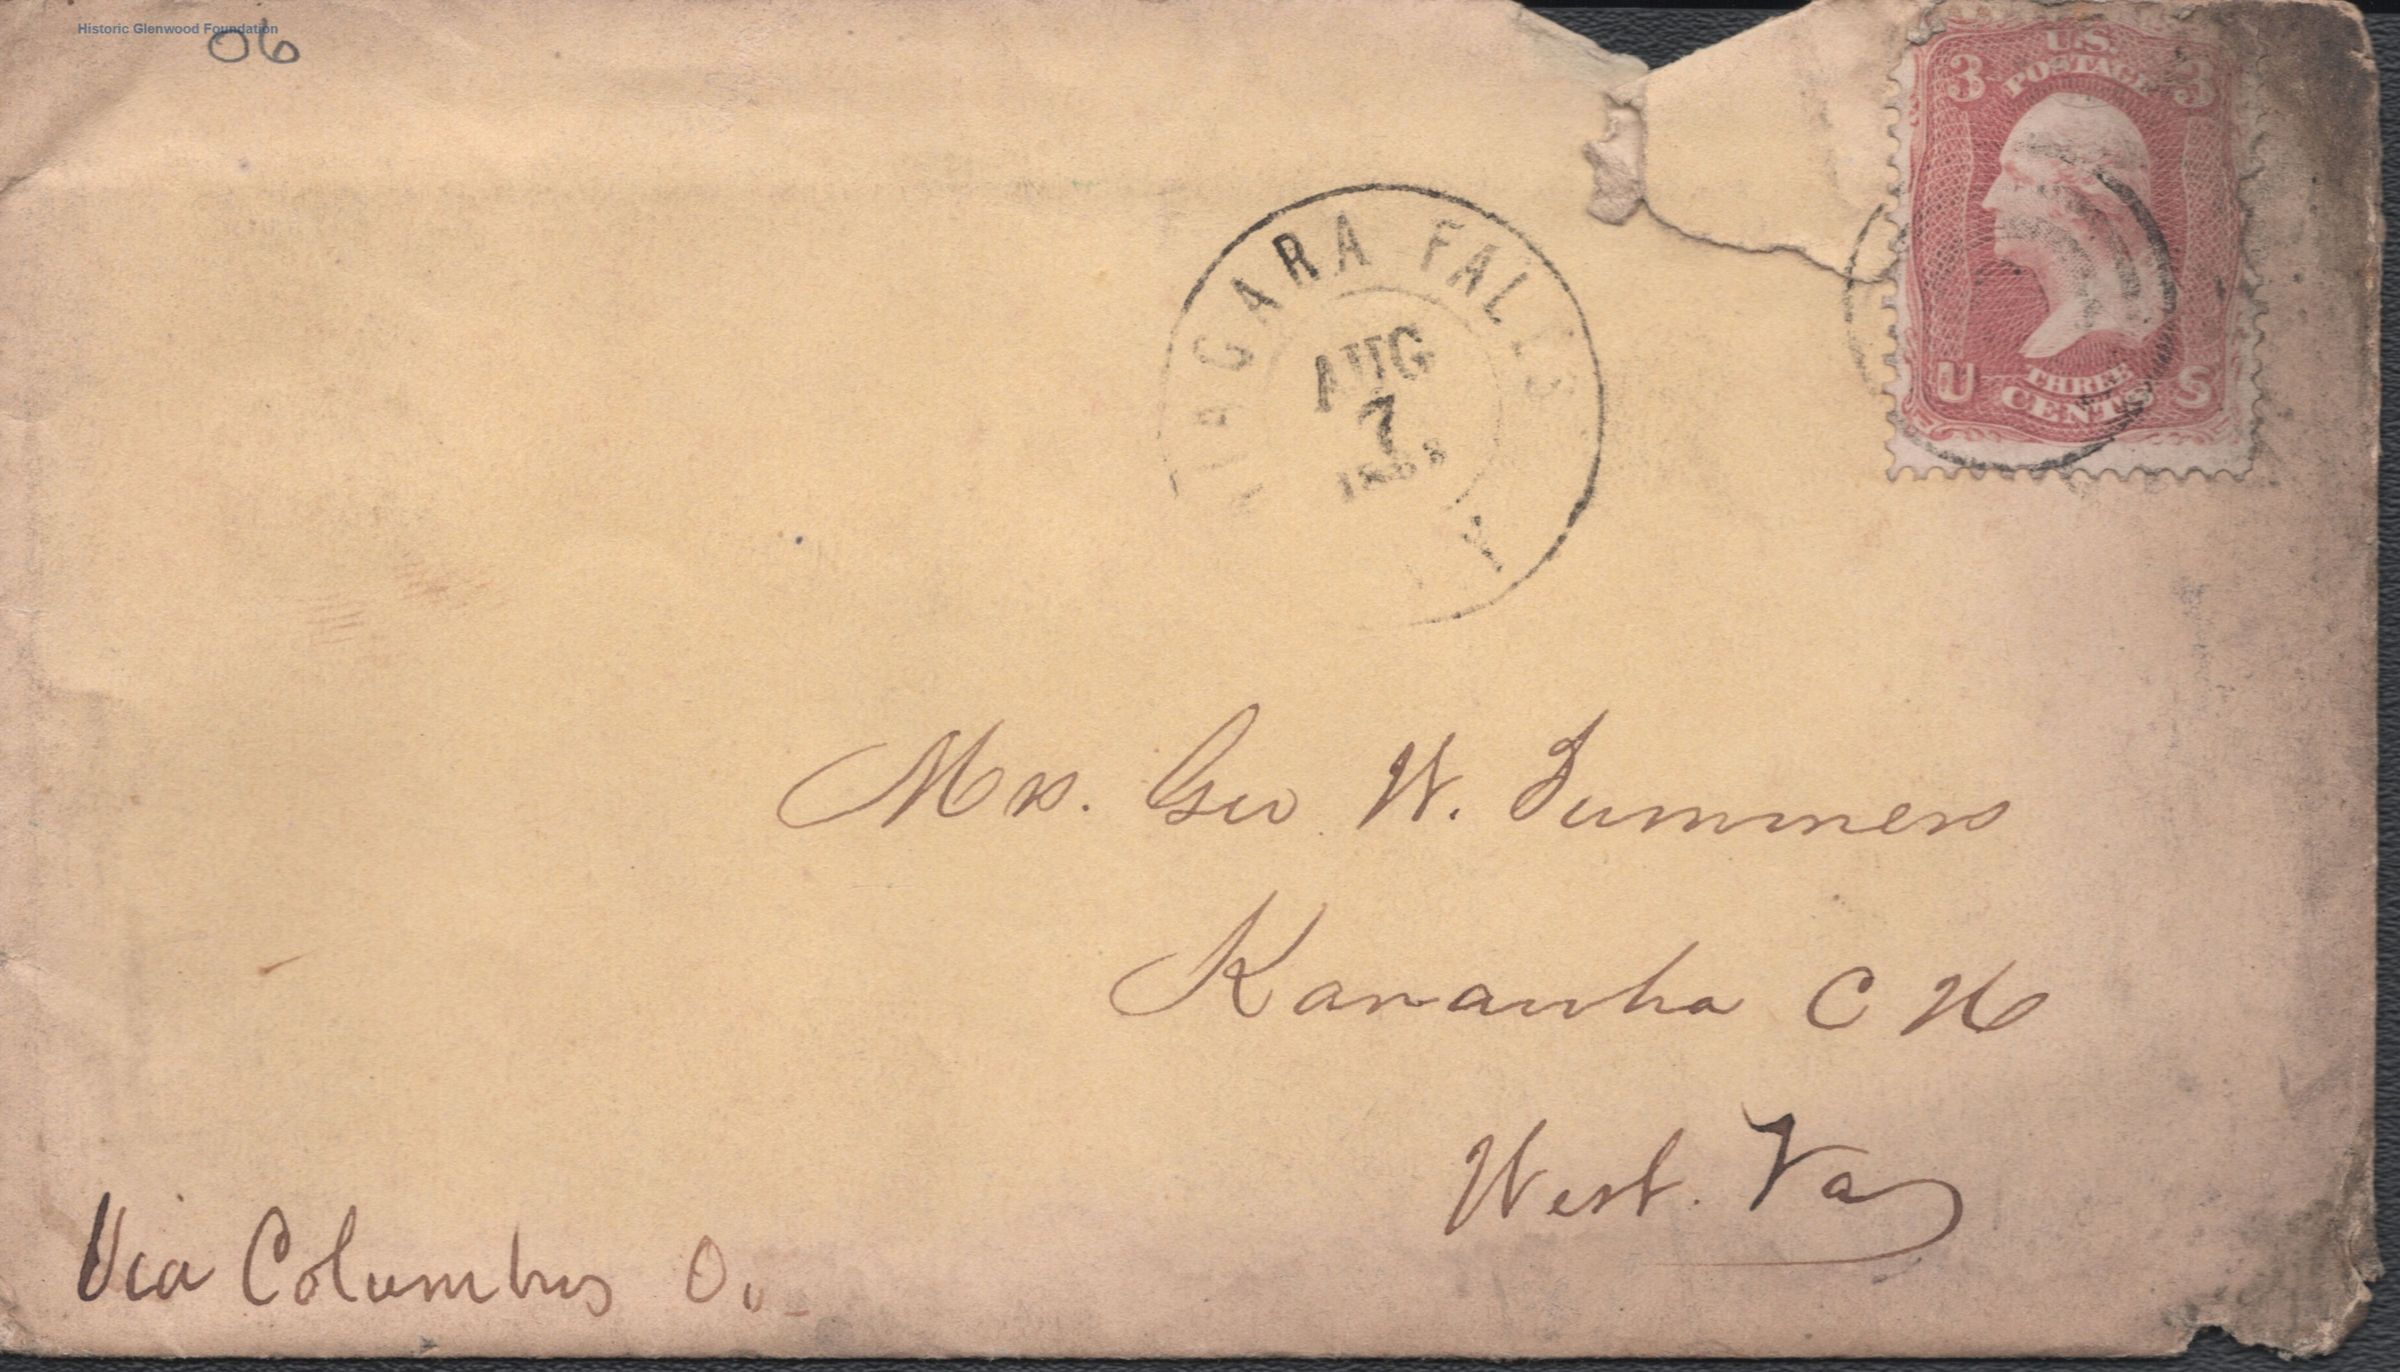 Historic Glenwood Foundation
06
U.S.
POSTAGE
3 3
THREE
CENTS
U S
NIAGARA FALLS
AUG
7
N.Y.
Mrs. Geo W. Summers
Kanawha C H
West. Va
Via Columbus O.